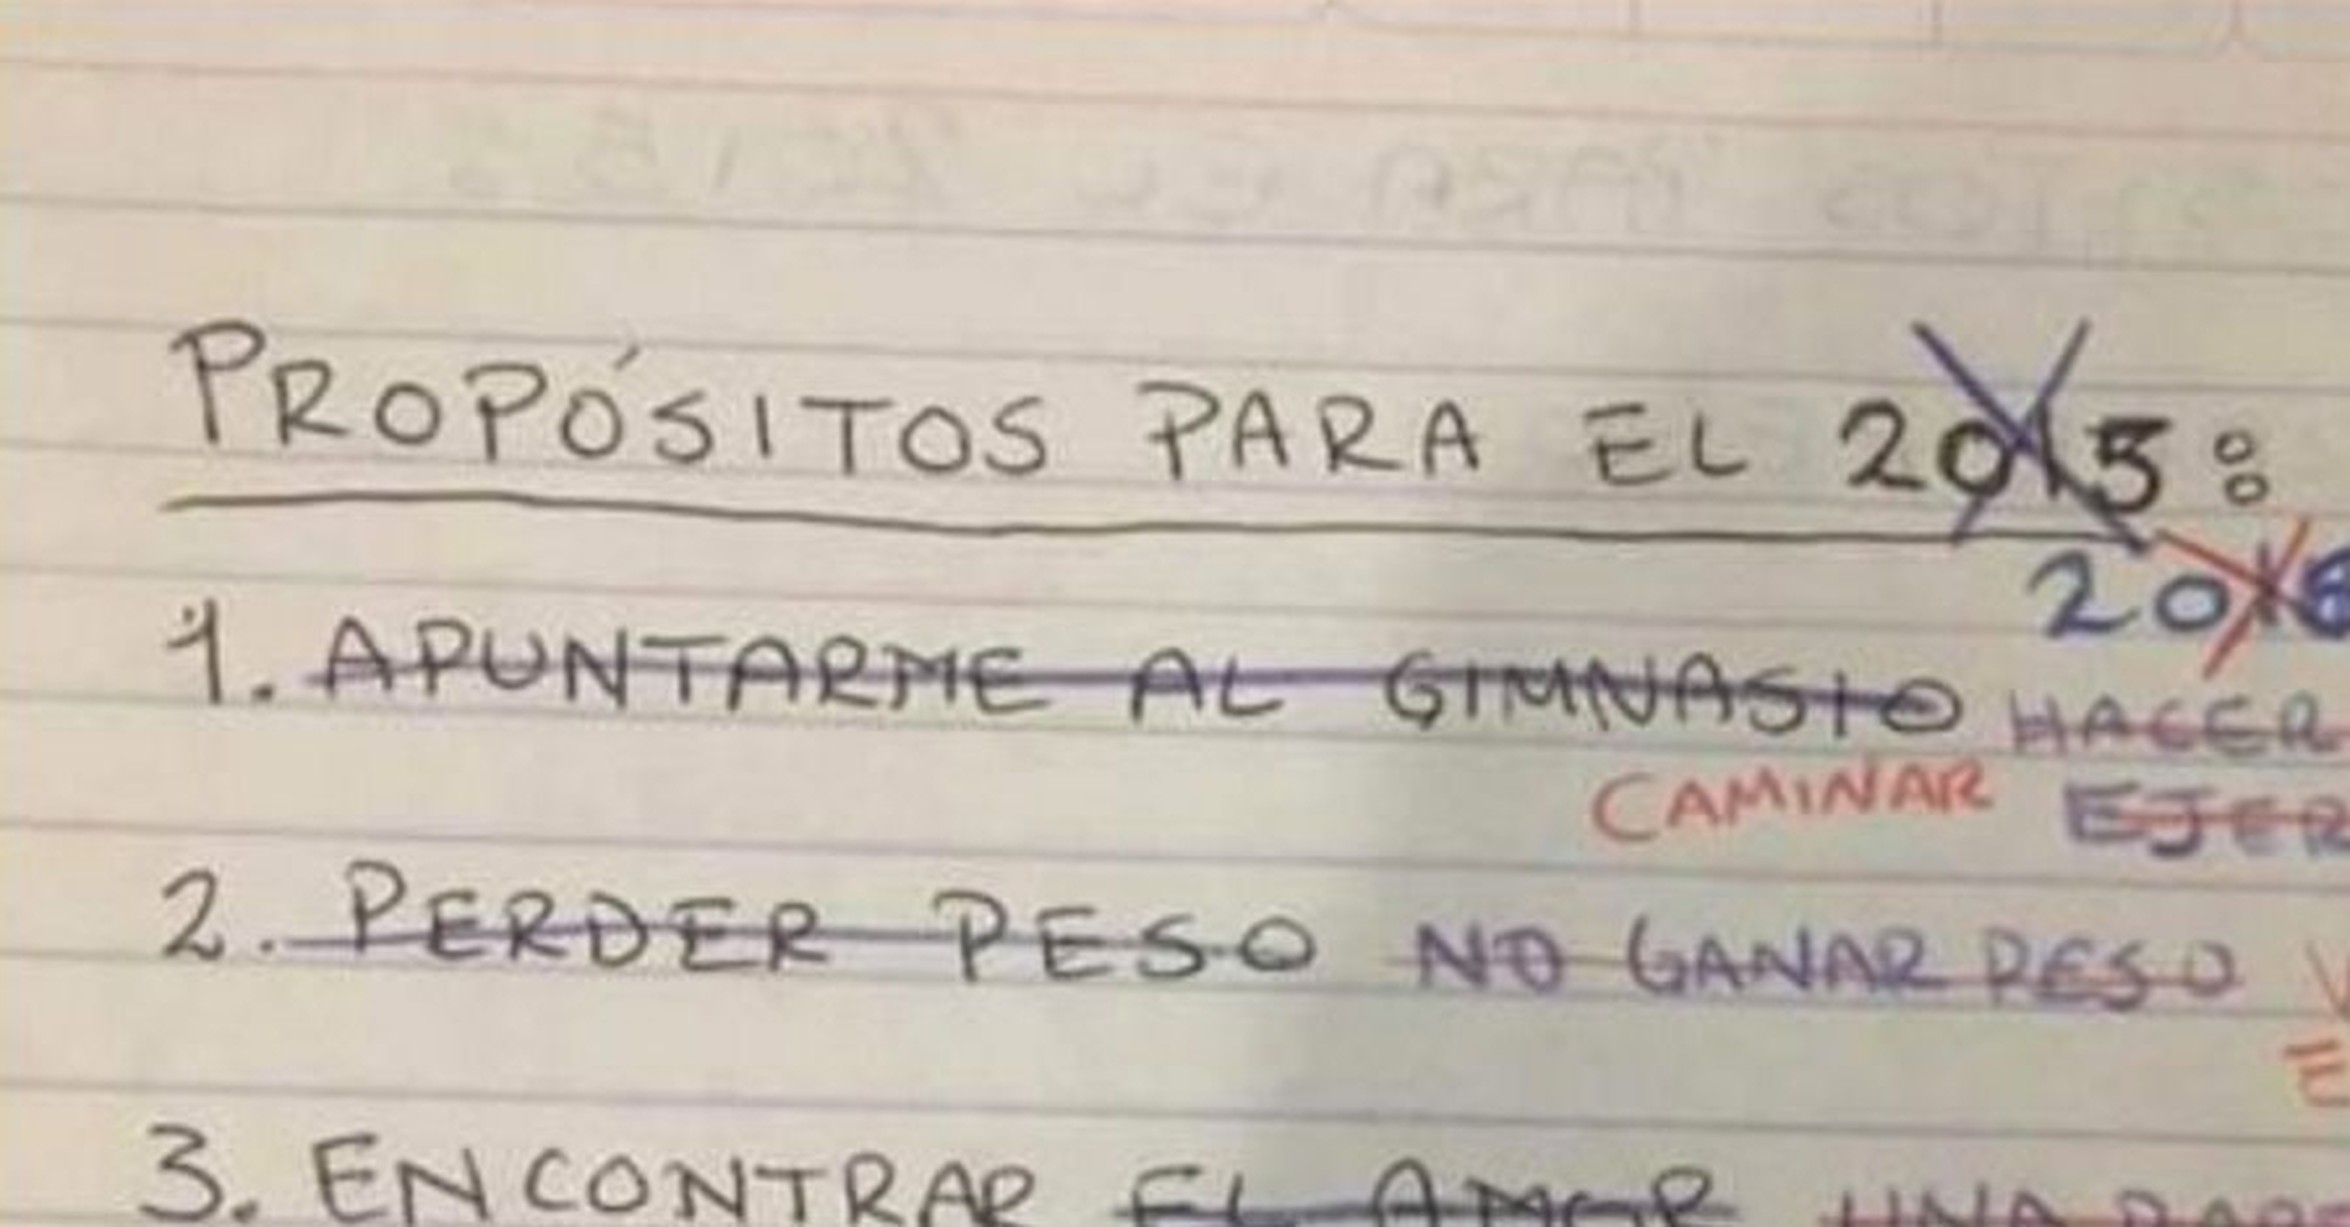 PROPÓSITOS PARA EL 2015:
2016
1. APUNTARME AL GIMNASIO HACER
CAMINAR
2. PERDER PESO NO GANAR PESO
3. ENCONTRAR EL AMOR UNA